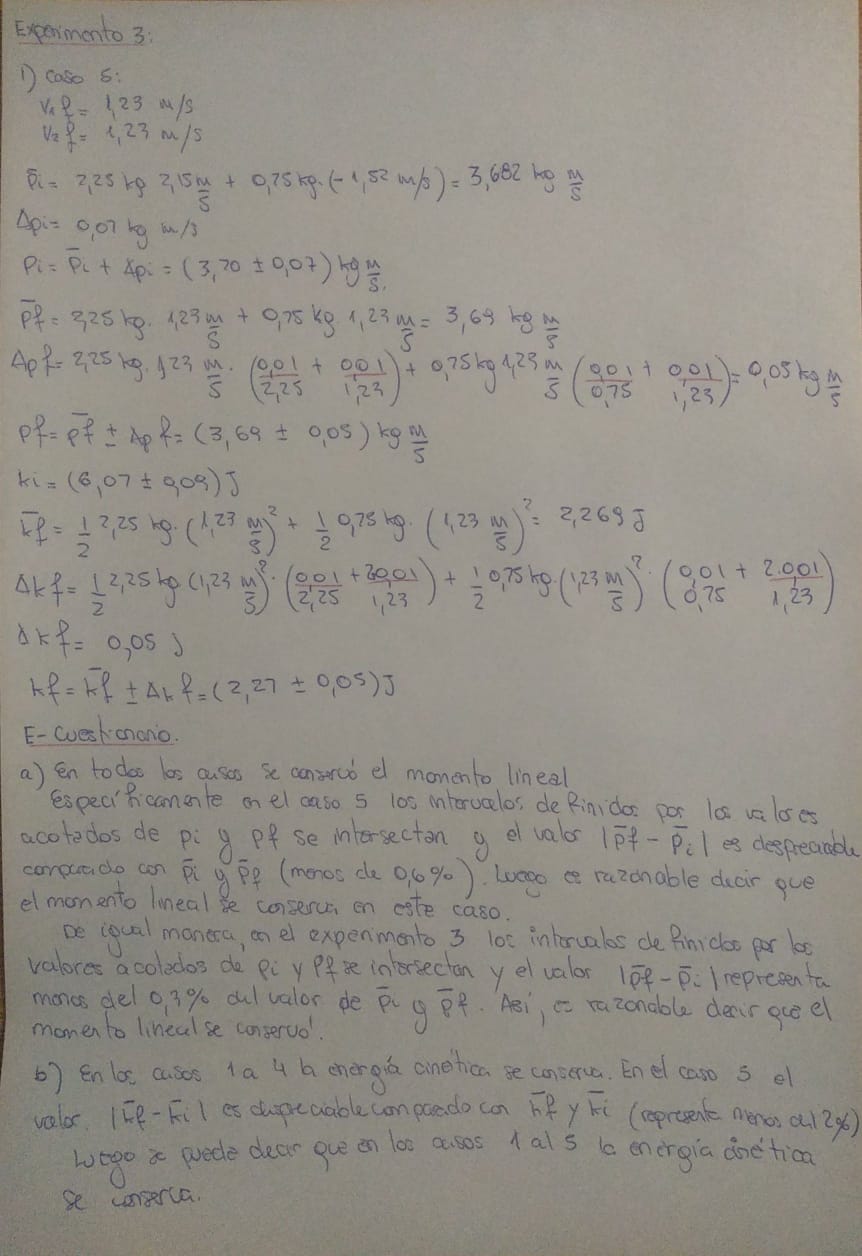 Experimento 3:
1) Caso 5:
V₁f = 1,23 m/s
V₂f = 1,23 m/s
p̄i = 2,25 kg 2,15 m/s + 0,75 kg. (-1,52 m/s) = 3,682 kg m/s
Δpi = 0,07 kg m/s
Pi = P̄i + Δpi = (3,70 ± 0,07) kg m/s.
p̄f = 2,25 kg. 1,23 m/s + 0,75 kg. 1,23 m/s = 3,69 kg m/s
Δpf = 2,25 kg. 1,23 m/s. (0,01/2,25 + 0,01/1,23) + 0,75 kg 1,23 m/s (0,01/0,75 + 0,01/1,23) = 0,05 kg m/s
pf = p̄f ± Δpf = (3,69 ± 0,05) kg m/s
ki = (6,07 ± 0,09) J
k̄f = 1/2 2,25 kg. (1,23 m/s)² + 1/2 0,75 kg. (1,23 m/s)² = 2,269 J
Δkf = 1/2 2,25 kg (1,23 m/s)². (0,01/2,25 + 2.0,01/1,23) + 1/2 0,75 kg. (1,23 m/s)². (0,01/0,75 + 2.0,01/1,23)
Δkf = 0,05 J
kf = k̄f ± Δkf = (2,27 ± 0,05) J
E- Cuestionario.
a) En todos los casos se conservó el momento lineal
Específicamente en el caso 5 los intervalos definidos por los valores
acotados de pi y pf se intersectan y el valor |p̄f - p̄i| es despreciable
comparado con p̄i y p̄f (menos de 0,6%). Luego es razonable decir que
el momento lineal se conserva en este caso.
De igual manera, en el experimento 3 los intervalos definidos por los
valores acotados de pi y Pf se intersectan y el valor |p̄f - p̄i| representa
menos del 0,3% del valor de p̄i y p̄f. Así, es razonable decir que el
momento lineal se conservó.
b) En los casos 1 a 4 la energía cinética se conserva. En el caso 5 el
valor. |k̄f - k̄i| es despreciable comparado con k̄f y k̄i (representa menos del 2%)
Luego se puede decir que en los casos 1 al 5 la energía cinética
se conserva.